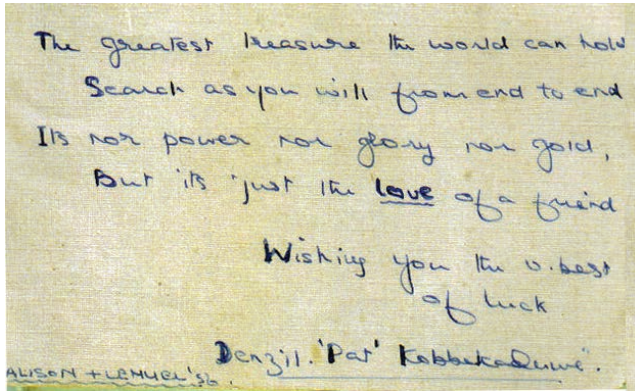 The greatest treasure the world can hold
Search as you will from end to end
It's nor power nor glory nor gold,
But its just the love of a friend
Wishing you the v. best
of luck
Denzil. 'Pat' Kobbekaduwe.
ALISON + LEMUEL '56.